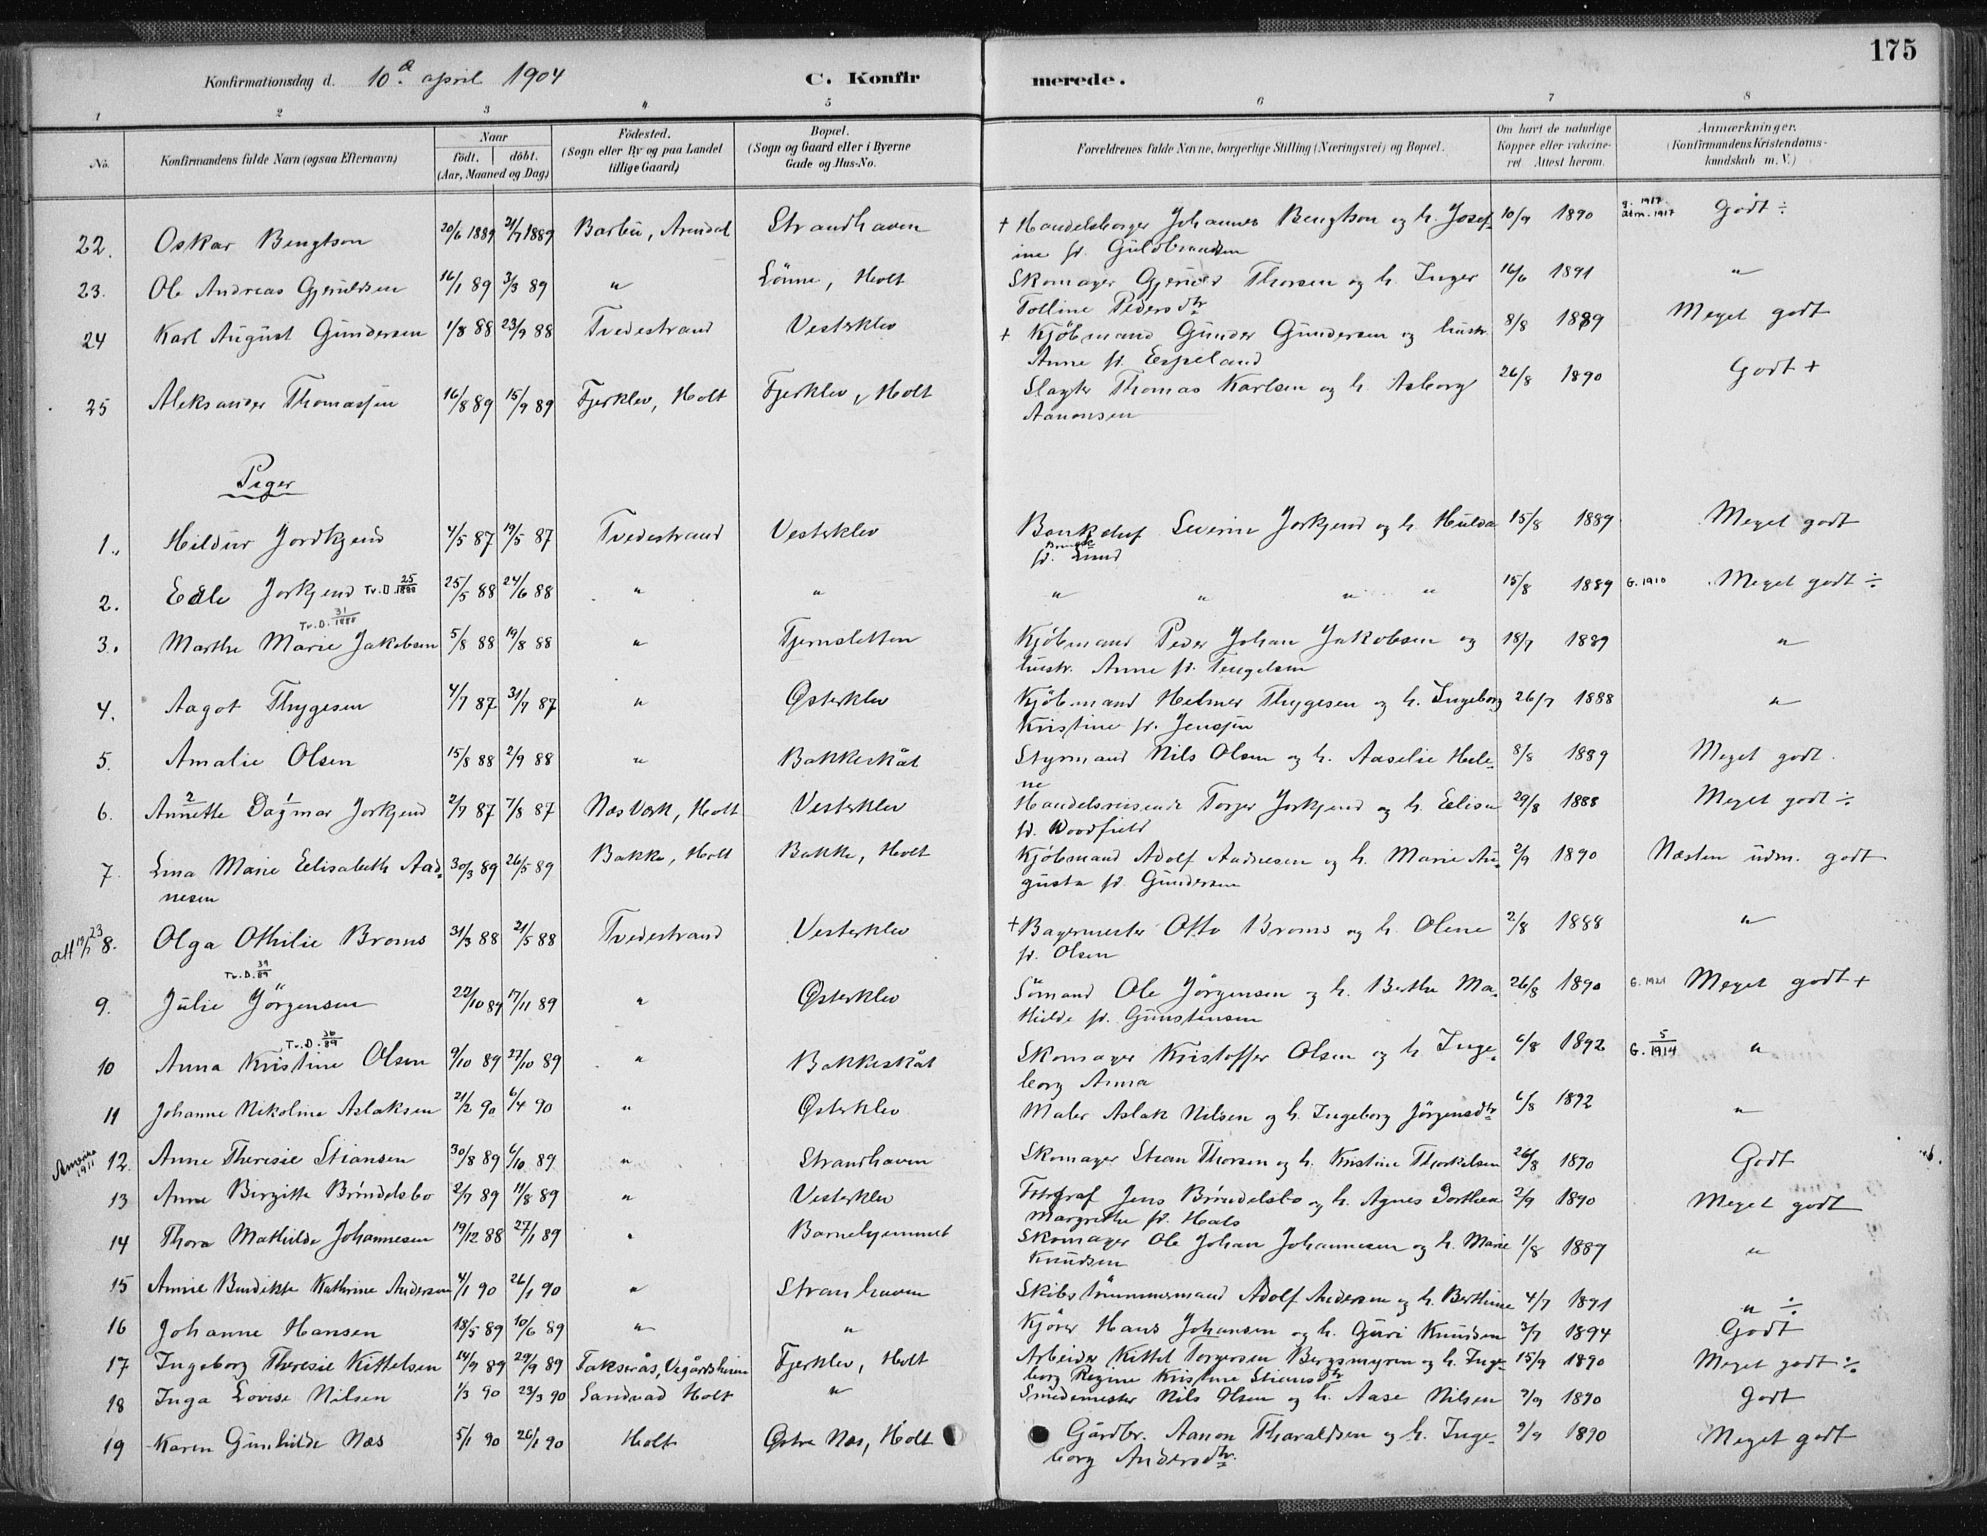 175
Konfirmationsdag d. 10de april 1904 C. Konfirmerede.
1 2 3 4 5 6 7 8
No. Konfirmandens fulde Navn (ogsaa Efternavn) Naar födt. döbt. (Aar, Maaned og Dag) Födested. (Sogn eller By og paa Landet tillige Gaard) Bopæl. (Sogn og Gaard eller i Byerne Gade og Hus-No. Forældrenes fulde Navne, borgerlige Stilling (Næringsvei) og Bopæl. Om havt de naturlige Kopper eller vaccineret Attest herom. Anmærkninger. (Konfirmandens Kristendomskundskab m. V.)
22. Oskar Bengtson 20/6 1889 21/7 1889 Barbu, Arendal Strandhaven + Handelsborger Johannes Bengtson og h. Josef- 10/9 1890 Godt ÷
ine f. Guldbrandsen
23. Ole Andreas Gjeruldsen 16/1 89 3/3 89 " Lönne, Holt Skomager Gjeruld Thorsen og h. Inger 16/6 1891 "
Tolline Pedersdtr
24 Karl August Gundersen 1/8 88 23/9 88 Tvedestrand Vesterklev + Kjöbmand Gunder Gundersen og hustr. 8/8 1889 Meget godt
Anne f. Espeland
25 Aleksander Thomassen 16/8 89 15/9 89 Fjerklev, Holt Fjerklev, Holt Slagter Thomas Karlsen og h. Asborg 26/8 1890 Godt +
Aanonsen
Piger
1. Hildur Jordkjend 4/5 87 19/5 87 Tvedestrand Vesterklev Bankchef Severin Jorkjend og h. Hulda 15/8 1889 Meget godt
f. Lund
2. Edle Jorkjend Tv.D. 25/1888 25/5 88 24/6 88 " " " " " " 15/8 1889 G. 1910 Meget godt ÷
Tv.D. 31/1888
3. Marthe Marie Jakobsen 5/8 88 19/8 88 " Tjernsletten Kjöbmand Peder Johan Jakobsen og 18/7 1889 "
hustr. Anne f. Tengelsen
4. Aagot Thygesen 4/7 87 31/7 87 " Østerklev Kjöbmand Helmer Thygesen og h. Ingeborg 26/7 1888 "
Kristine f. Jenssen
5. Amalie Olsen 15/8 88 2/9 88 " Bakkeskåt Styrmand Nils Olsen og h. Aaselie Hele- 8/8 1889 Meget godt.
ne
6. Annette Dagmar Jorkjend 2/7 87 7/8 87 Næs Værk, Holt Vesterklev Handelsreisende Torjer Jorkjend og h. Elisa 29/8 1888 Meget godt ÷
f. Woodfield
7. Lina Marie Elisabeth Aad- 30/3 89 26/5 89 Bakke, Holt Bakke, Holt Kjöbmand Adolf Aadnesen og h. Marie Au- 2/9 1890 Næsten udm. godt
nesen gusta f. Gundersen
8. Olga Othilie Broms 31/3 88 21/5 88 Tvedestrand Vesterklev + Bagermester Otto Broms og h. Olene 2/8 1888 "
f. Olsen
Tv.D. 39/89
9. Julie Jörgensen 22/10 89 17/11 89 " Østerklev Sömand Ole Jörgensen og h. Berthe Ma- 26/8 1890 G. 1921 Meget godt +
thilde f. Gunstensen
Tv.D. 36/89
10 Anna Kristine Olsen 9/10 89 27/10 89 " Bakkeskåt Skomager Kristoffer Olsen og h. Inge- 6/8 1892 G. 5/1914 "
borg Anna
11 Johanne Nikoline Aslaksen 21/2 90 6/4 90 " Østerklev Maler Aslak Nilsen og h. Ingeborg Jörgensdtr 6/8 1892 "
Amerika 1911 12. Anne Theresie Stiansen 30/8 89 6/10 89 " Strandhaven Skomager Stean Thorsen og h. Kristine Thorkilsen 26/8 1890 Godt
13 Anne Birgitte Bröndelsbo 2/7 89 11/8 89 " Vesterklev Fotograf Jens Bröndelsbo og h. Agnes Dorthea 2/9 1890 Meget godt
Margrethe f. Hals
14 Thora Mathilde Johannesen 19/12 88 27/1 89 " Barnehjemmet Skomager Ole Johan Johannesen og h. Marie 1/8 1889 "
Knudsen
15 Annie Bendikte Kathrine Andersen 4/1 90 26/1 90 " Stranhaven Skibstömmermand Adolf Andersen og h. Berthine 4/7 1891 " ÷
16 Johanne Hansen 18/5 89 10/6 89 " " Kjörer Hans Johansen og h. Guri Knudsen 3/7 1894 Godt
17 Ingeborg Theresie Kittelsen 14/9 89 29/9 89 Takserås, Vegårdsheien Fjerklev, Holt Arbeider Kittel Torgersen Bergsmyren og h. Inge- 15/9 1890 Meget godt ÷
borg Regine Kristine Stiensdtr
18 Inga Lovise Nilsen 1/3 90 23/3 90 Sandvad Holt " Smedemester Nils Olsen og h. Aase Nilsen 9/9 1890 Godt
19 Karen Gunhilde Næs 5/1 90 26/1 90 Holt Østre Næs, Holt Gårdbr. Aanon Tharaldsen og h. Inge- 9/9 1890 Meget godt
borg Andersdtr.